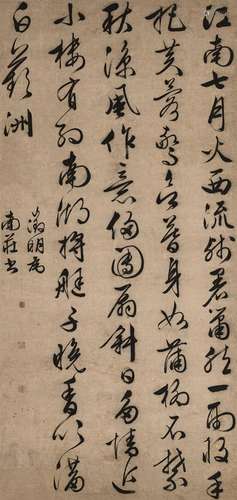 江南七月火西流殘暑蕭然一雨收手
把芙蓉驚宿昔身如蒲柳不禁
秋涼風作意侵團扇斜日多情近
小樓有約南湖將艇子晚香吹滿
白蘋洲
徵明為
南莊書